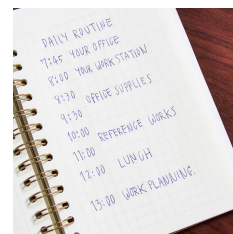 DAILY ROUTINE
7:45 YOUR OFFICE
8:00 YOUR WORKSTATION
8:30 OFFICE SUPPLIES
9:30
10:00 REFERENCE WORKS
11:00
12:00 LUNCH
13:00 WORK PLANNING